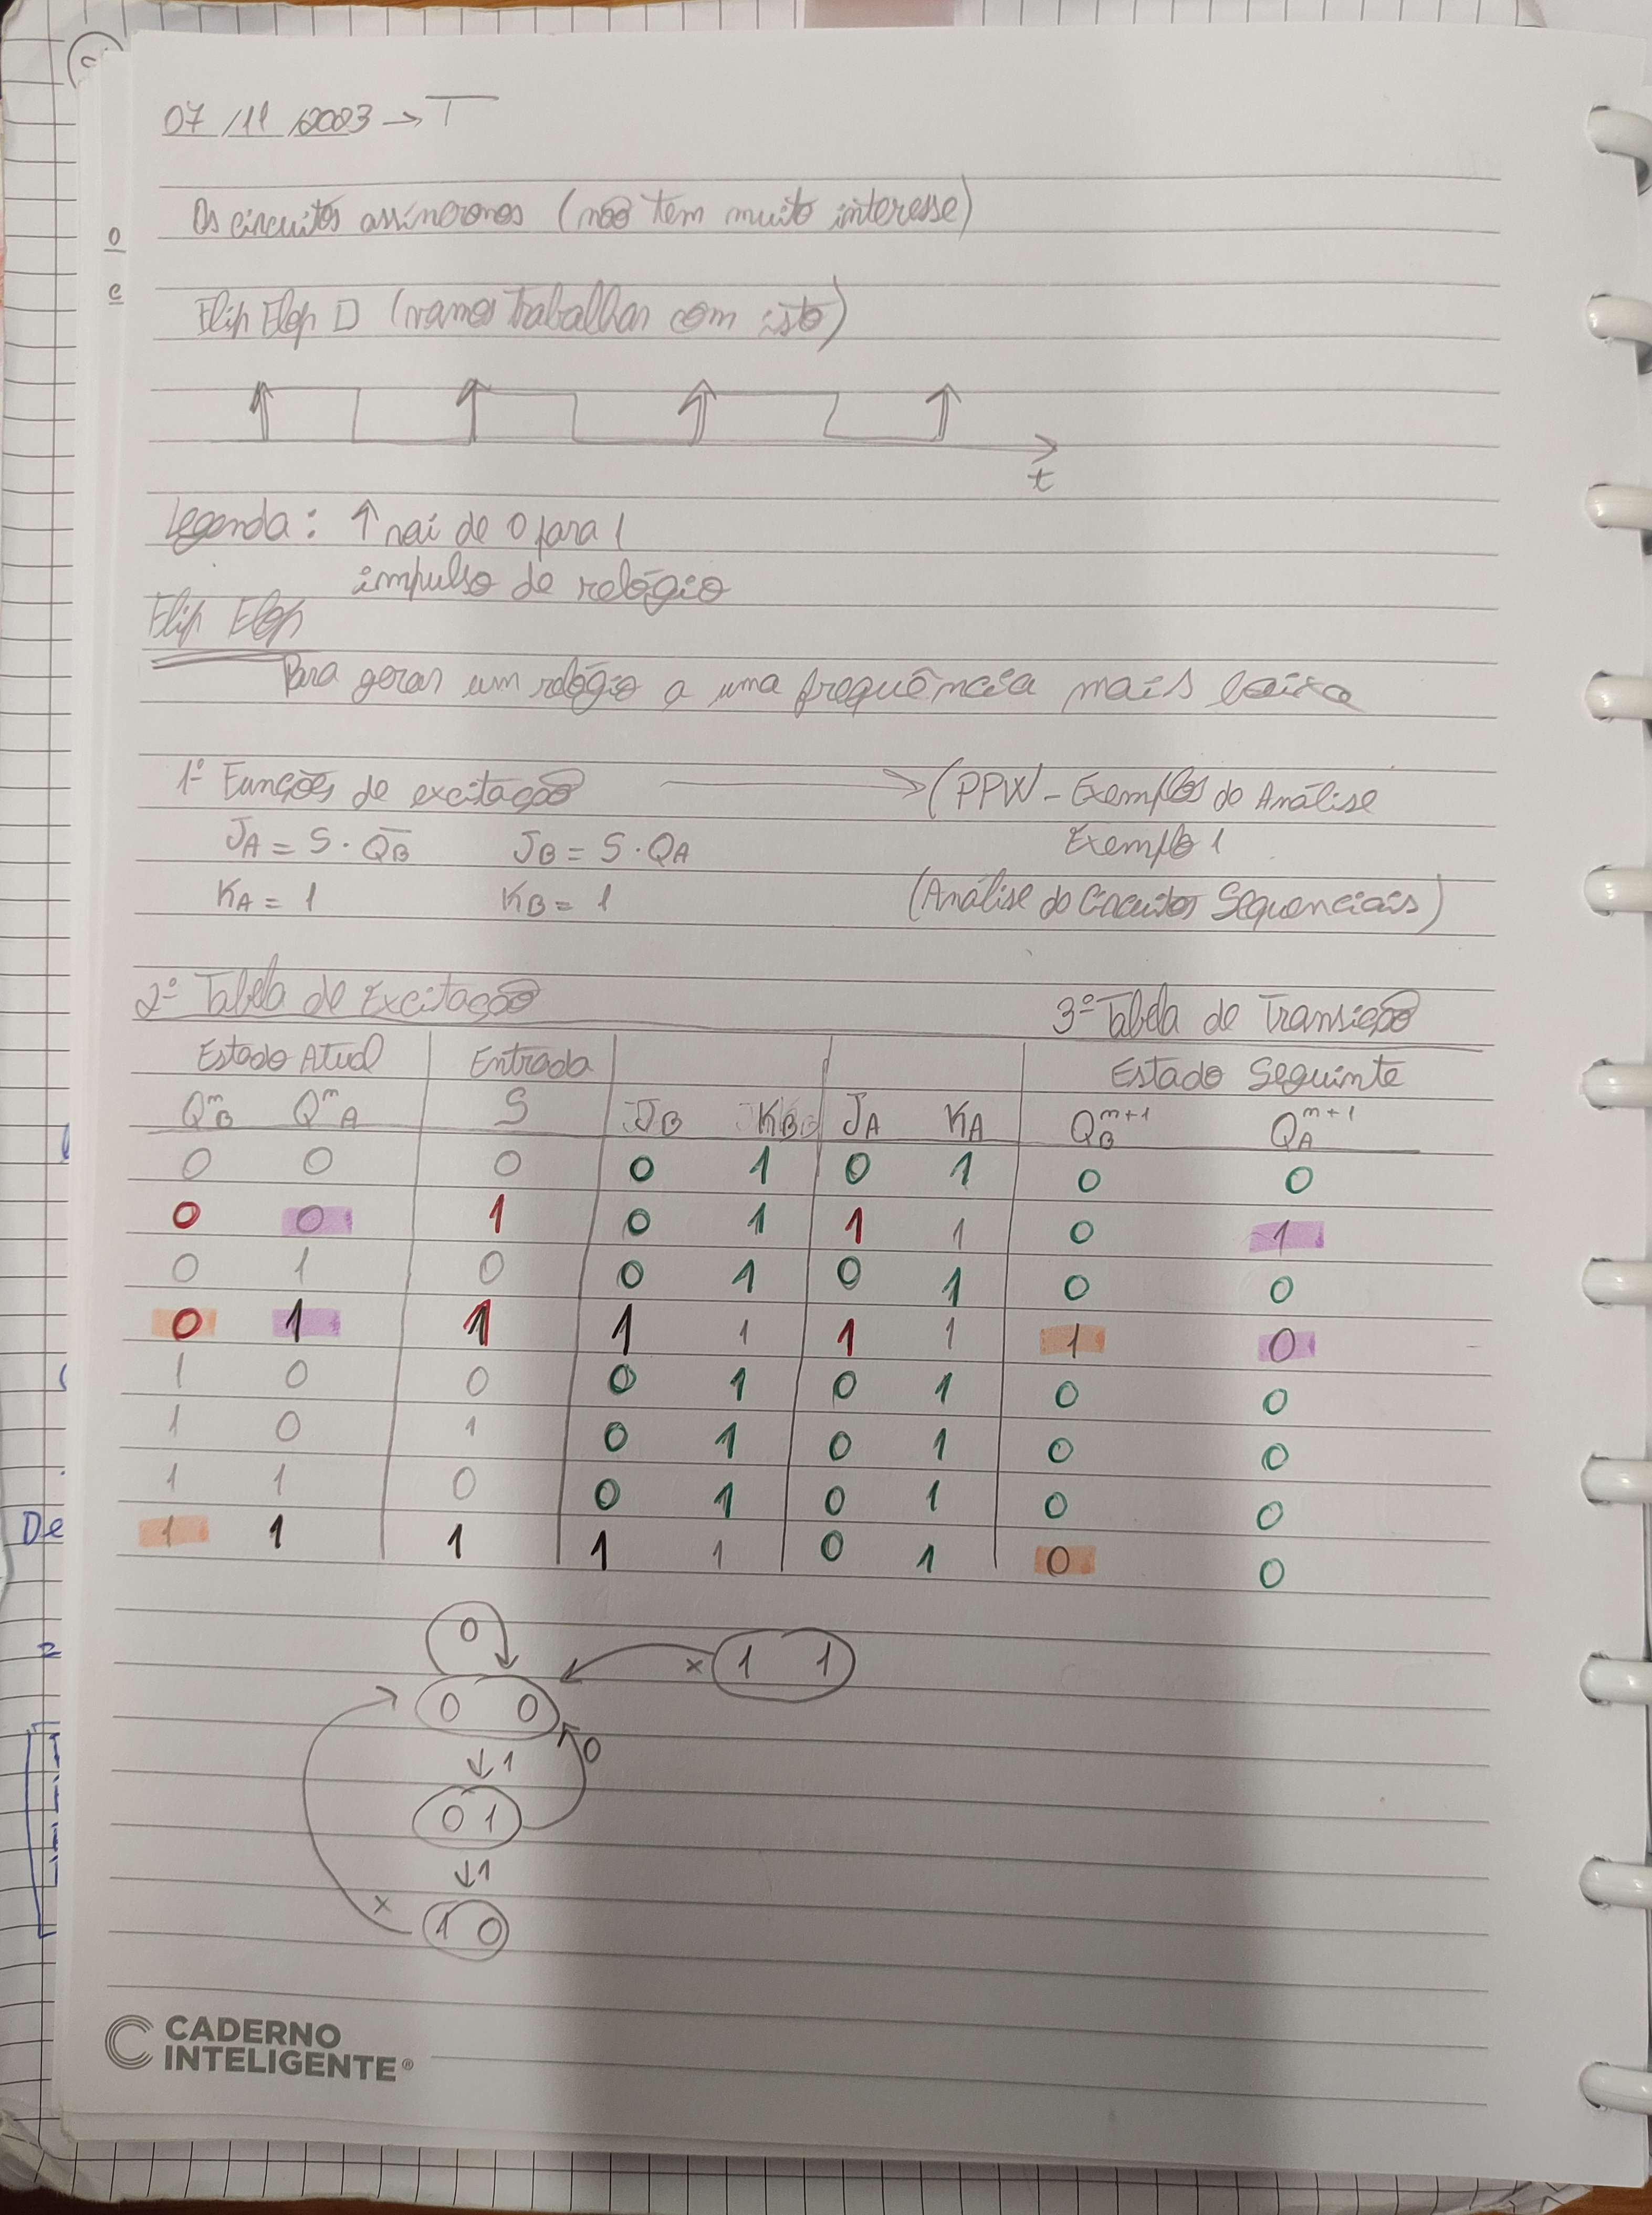 07/11/2023 → T
Os circuitos assíncronos (não tem muito interesse)
o
e
Flip Flop D (vamos trabalhar com isto)
t
Legenda: ↑ vai de 0 para 1
impulso de relógio
Flip Flop
Para gerar um relógio a uma frequência mais baixa
1º Funções de excitação → (PPW - Exemplos de Análise
JA = S · Q̅B JB = S · QA Exemplo 1
KA = 1 KB = 1 (Análise de Circuitos Sequenciais)
2º Tabela de Excitação 3º Tabela de Transição
Estado Atual Entrada Estado Seguinte
QB^m QA^m S JB KB JA KA QB^m+1 QA^m+1
0 0 0 0 1 0 1 0 0
0 0 1 0 1 1 1 0 1
0 1 0 0 1 0 1 0 0
0 1 1 1 1 1 1 1 0
1 0 0 0 1 0 1 0 0
1 0 1 0 1 0 1 0 0
1 1 0 0 1 0 1 0 0
De
1 1 1 1 1 0 1 0 0
0
x 1 1
0 0
↓1 0
0 1
↓1
x 1 0
CADERNO
INTELIGENTE®